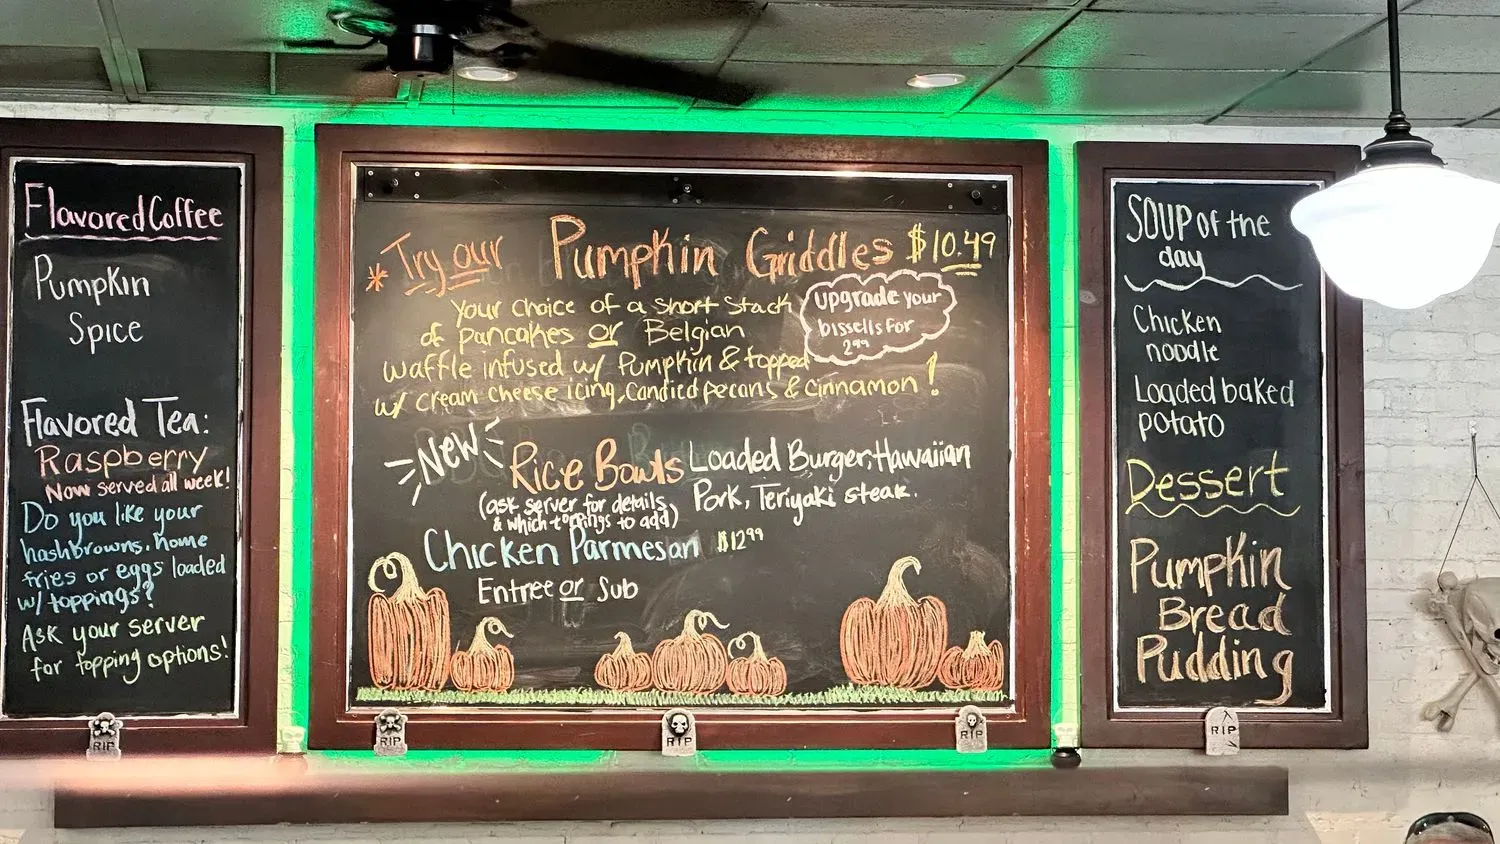 Flavored Coffee
Pumpkin
Spice
Flavored Tea:
Raspberry
Now served all week!
Do you like your
hashbrowns, home
fries or eggs loaded
w/ toppings?
Ask your server
for topping options!
* Try our Pumpkin Griddles $10.49
Your choice of a short stack
of pancakes or Belgian
waffle infused w/ Pumpkin & topped
w/ cream cheese icing, Candied pecans & cinnamon!
Upgrade your
bissells for
2.99
New
Rice Bowls Loaded Burger, Hawaiian
Pork, Teriyaki steak.
(ask server for details
& which toppings to add)
Chicken Parmesan $12.99
Entree or Sub
SOUP of the
day
Chicken
noodle
Loaded baked
potato
Dessert
Pumpkin
Bread
Pudding
RIP
RIP
RIP
RIP
RIP